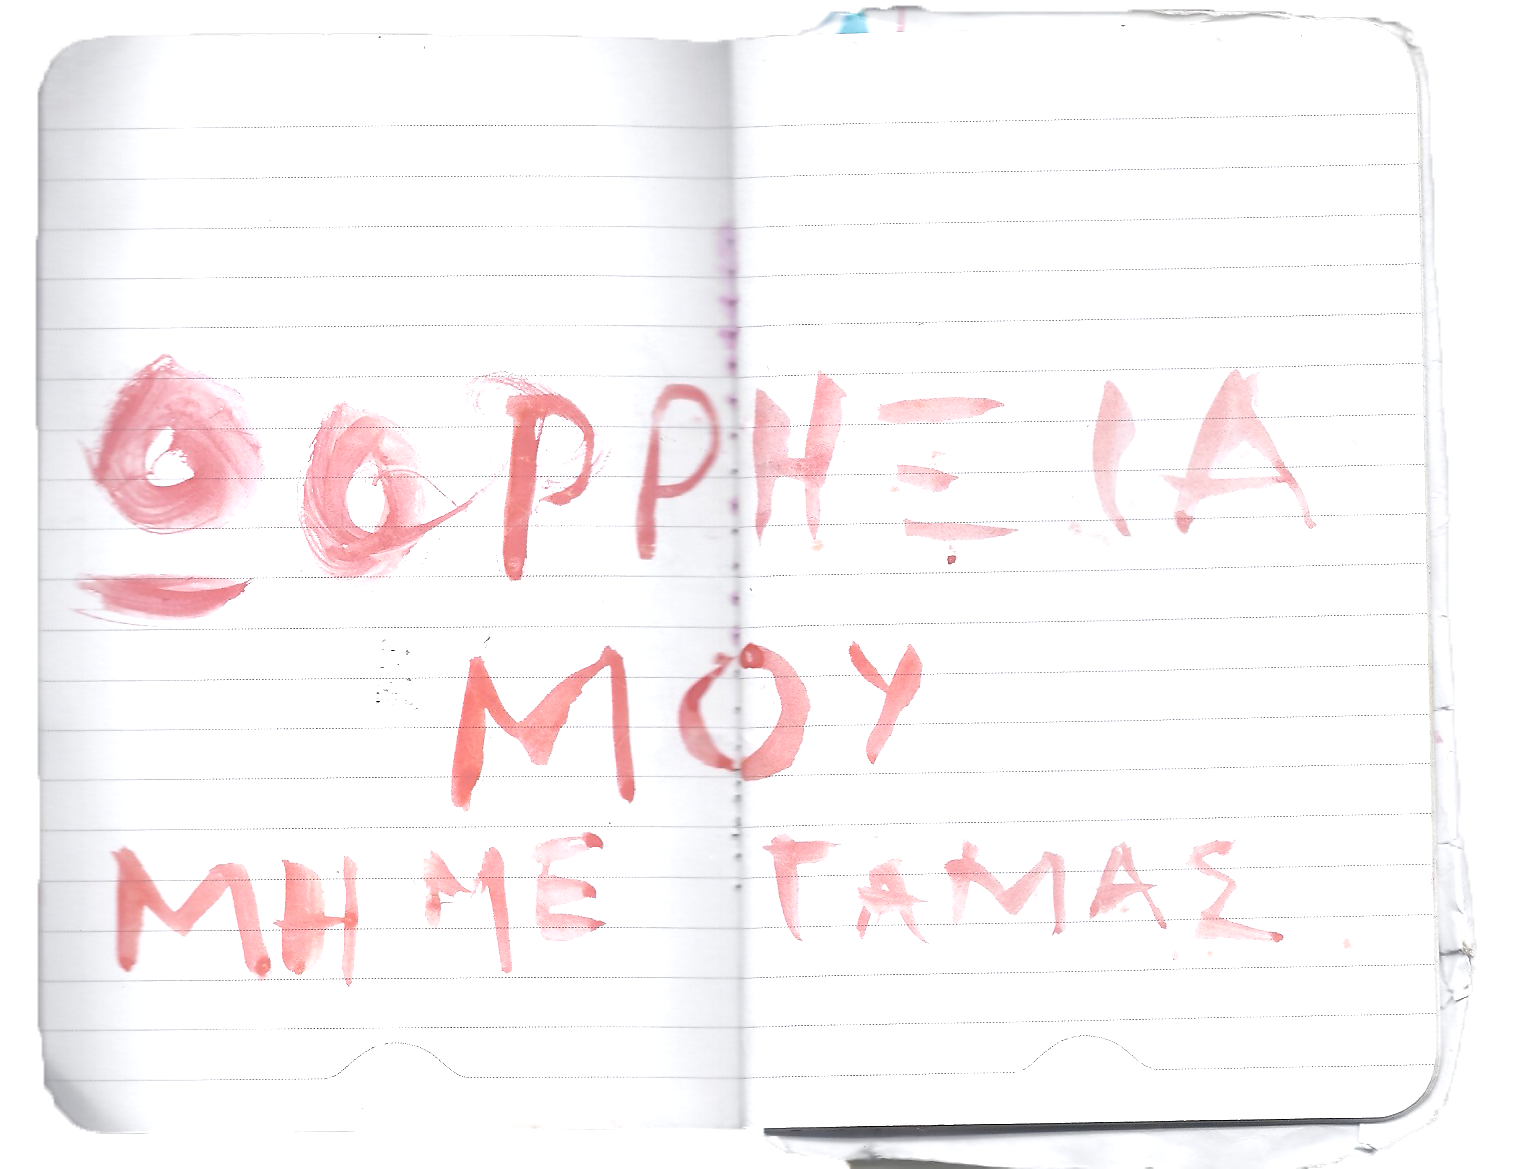 ΩΟΡΡΗΞΙΑ
ΜΟΥ
ΜΗ ΜΕ ΓΑΜΑΣ